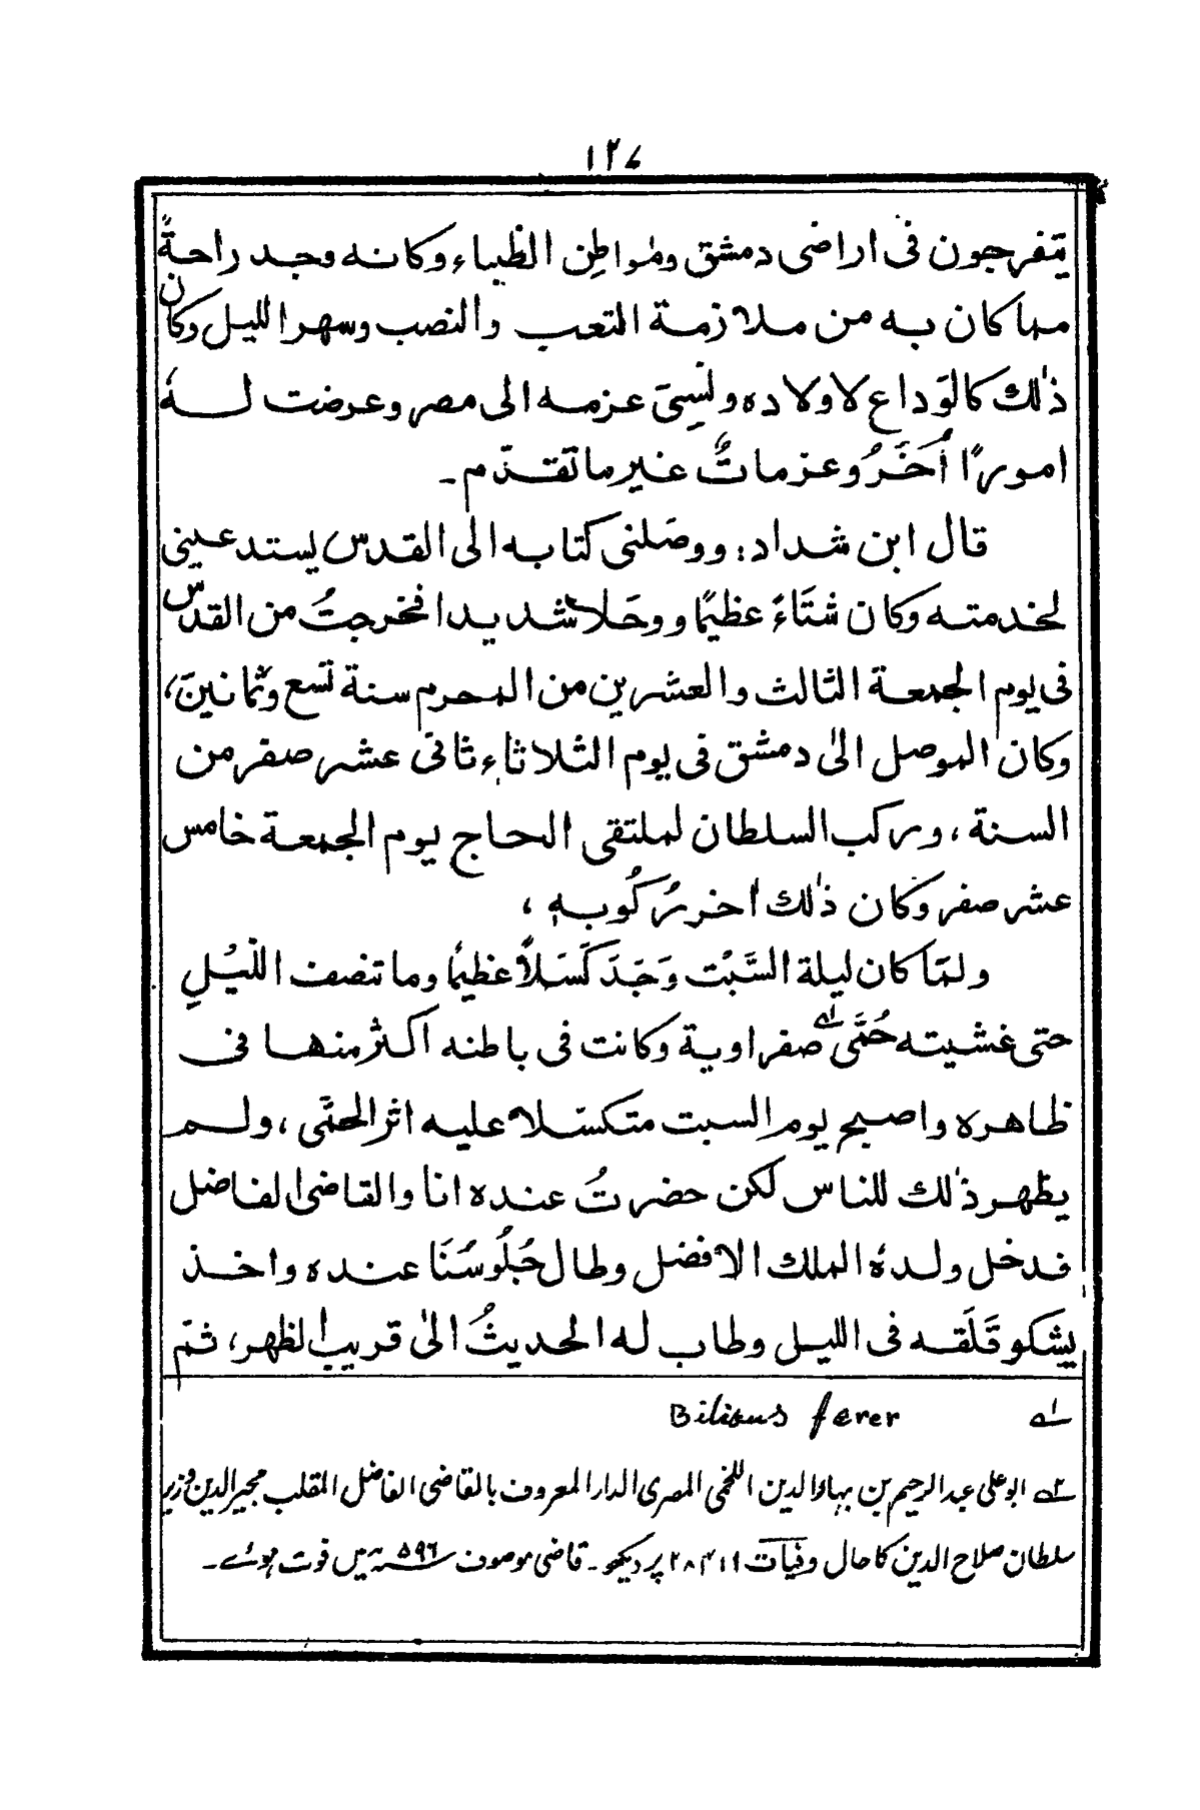 ۱۲۷
يتفرجون فی اراضی دمشق ومواطن الظباء وكانه وجد راحةً
مما كان به من ملازمة التعب والنصب وسهر الليل وكان
ذٰلك كالوَداع لاولاده ونَسِیَ عزمه الی مصر وعرضت لهٗ
امورًا اُخَرُ وعزماتٌ غير ما تقدّم۔
قال ابن شداد: ووصَلنی كتابه الی القدس يستدعينی
لخدمته وكان شتَاءً عظيمًا ووحَلا شديدا فخرجتُ من القدس
فی يوم الجمعة الثالث والعشرين من المحرم سنة تسع وثمانينَ،
وكان الموصل الیٰ دمشق فی يوم الثلاثاء ثانی عشر صفر من
السنة، وركب السلطان لملتقی الحاج يوم الجمعة خامس
عشر صفر وكان ذٰلك اٰخر رُكُوبهٖ،
ولمّا كان ليلة السَّبْت وَجَدَ كَسَلاً عظيمًا وما تنصف الليْلِ
حتی غشيته حُمَّی لہ صفراوية وكانت فی باطنه اكثر منها فی
ظاهره واصبح يوم السبت متكسّلا عليه اثر الحمّی، ولم
يظهر ذٰلك للناس لكن حضرتُ عنده انا والقاضی الفاضل
فدخل ولدهٗ الملك الافضل وطال جُلُوسُنَا عنده واخذ
يشكو قَلَقه فی الليل وطاب له الحديثُ الیٰ قريب الظهر، ثمّ
لہ Bilious ferer
۲ہ ابو علی عبد الرحیم بن بہاؤ الدین اللخمی المصری الدار المعروف بالقاضی الفاضل الملقب مجیر الدین وزیر
سلطان صلاح الدین کا حال وفیات ۲۸۴۱۱ پر دیکھو۔ قاضی موصوف ۵۹۶ھ میں فوت ہوئے۔